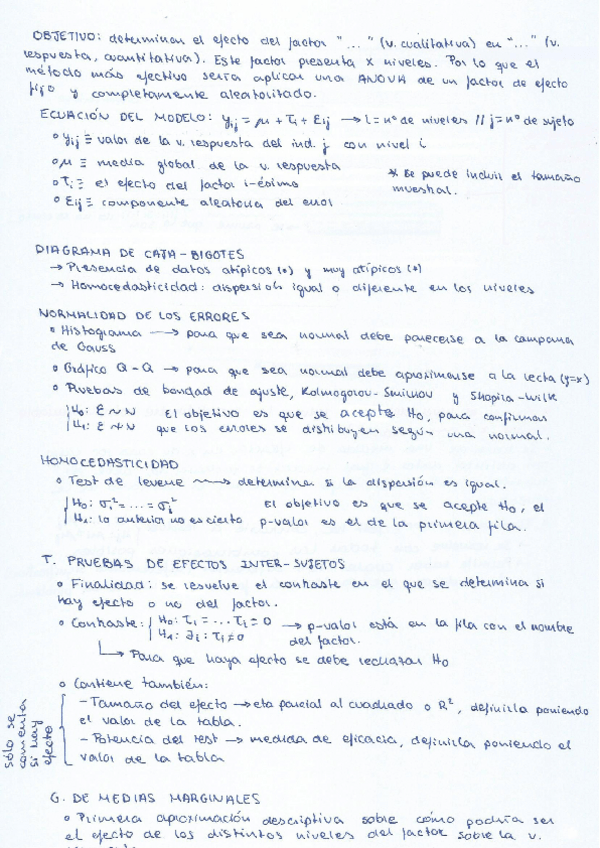 OBJETIVO: determinar el efecto del factor "..." (v. cualitativa) en "..." (v.
respuesta, cuantitativa). Este factor presenta x niveles. Por lo que el
método más efectivo sería aplicar una ANOVA de un factor de efecto
fijo y completamente aleatorizado.
ECUACIÓN DEL MODELO: yij = μ + τi + εij → i = nº de niveles // j = nº de sujeto
• yij ≡ valor de la v. respuesta del ind. j con nivel i
• μ ≡ media global de la v. respuesta
• τi ≡ el efecto del factor i-ésimo
* Se puede incluir el tamaño
muestral.
• εij ≡ componente aleatoria del error
DIAGRAMA DE CAJA-BIGOTES
→ Presencia de datos atípicos (•) y muy atípicos (*)
→ Homocedasticidad: dispersión igual o diferente en los niveles
NORMALIDAD DE LOS ERRORES
• Histograma → para que sea normal debe parecerse a la campana
de Gauss
• Gráfico Q-Q → para que sea normal debe aproximarse a la recta (y=x)
• Pruebas de bondad de ajuste, Kolmogorov-Smirnov y Shapira-Wilk
H0: ε ~ N El objetivo es que se acepte H0, para confirmar
H1: ε ≁ N que los errores se distribuyen según una normal.
HOMOCEDASTICIDAD
• Test de levene → determinar si la dispersión es igual.
H0: σ1² = ... = σi² El objetivo es que se acepte H0, el
H1: lo anterior no es cierto p-valor es el de la primera fila.
T. PRUEBAS DE EFECTOS INTER-SUJETOS
• Finalidad: se resuelve el contraste en el que se determina si
hay efecto o no del factor.
• Contraste: H0: τ1 = ... τi = 0 → p-valor está en la fila con el nombre
H1: ∃i : τi ≠ 0 del factor.
→ Para que haya efecto se debe rechazar H0
• Contiene también:
- Tamaño del efecto → eta parcial al cuadrado o R², definirla poniendo
el valor de la tabla.
- Potencia del test → medida de eficacia, definirla poniendo el
valor de la tabla
sólo se
comenta
si hay
efecto
G. DE MEDIAS MARGINALES
• Primera aproximación descriptiva sobre cómo podría ser
el efecto de los distintos niveles del factor sobre la v.